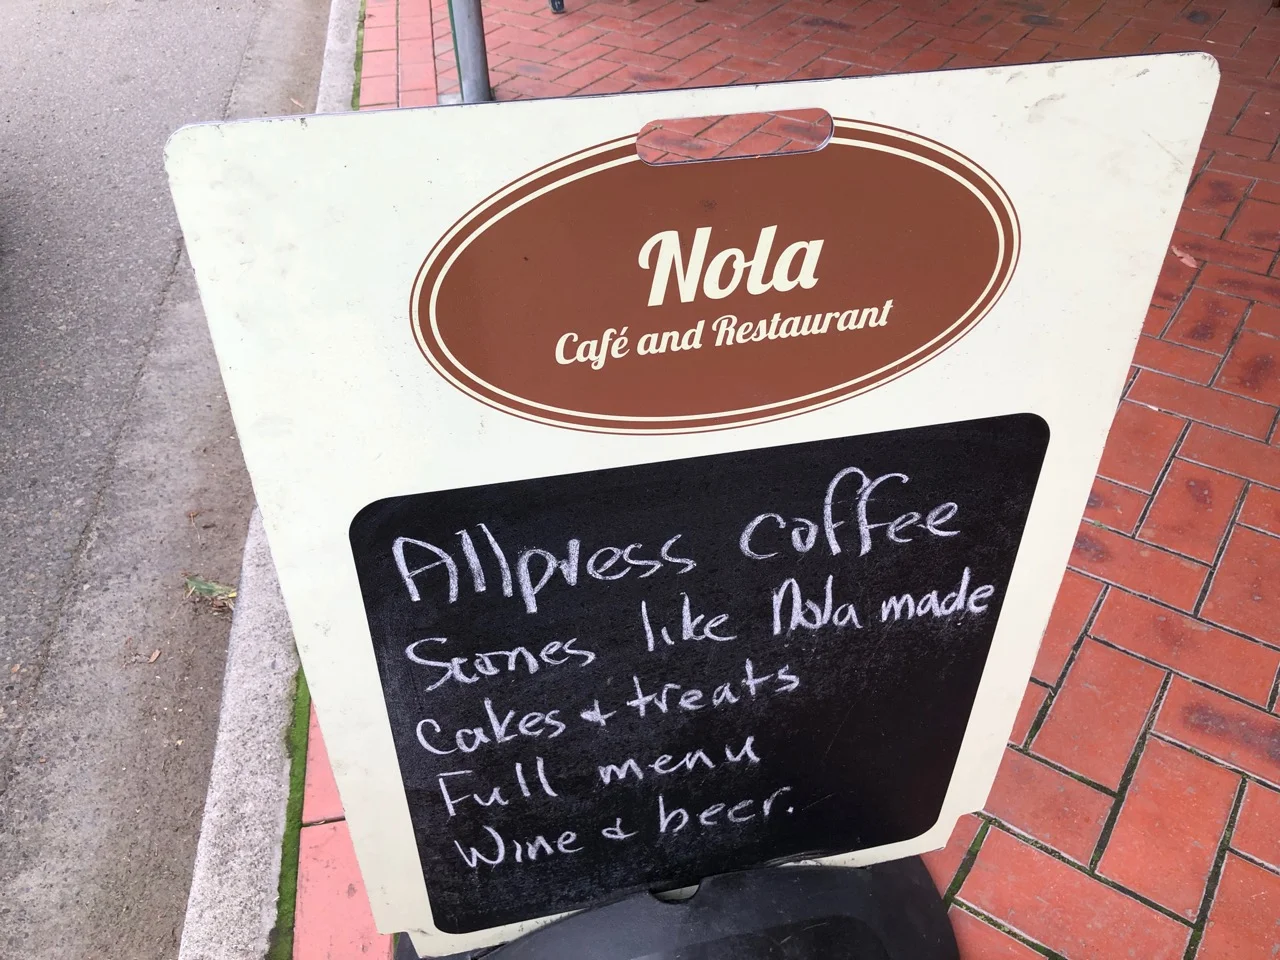 Nola
Café and Restaurant
Allpress coffee
Scones like Nola made
Cakes & treats
Full menu
Wine & beer.